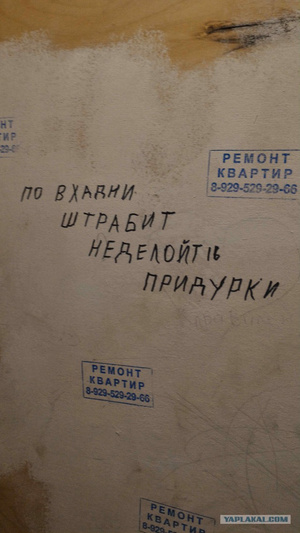 НТ
ТИР
29-66
РЕМОНТ
КВАРТИР
8-929-529-29-66
ПО ВХАДНИ
ШТРАБИТ
НЕДЕЛОЙТІЬ
ПРИДУРКИ
РЕМОНТ
КВАРТИР
8-929-529-29-66
РЕМОНТ
КВАРТИР
8-929-529-29-66
YAPLAKAL.COM